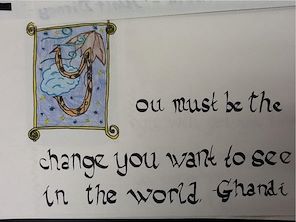 You must be the
change you want to see
in the world. -Ghandi